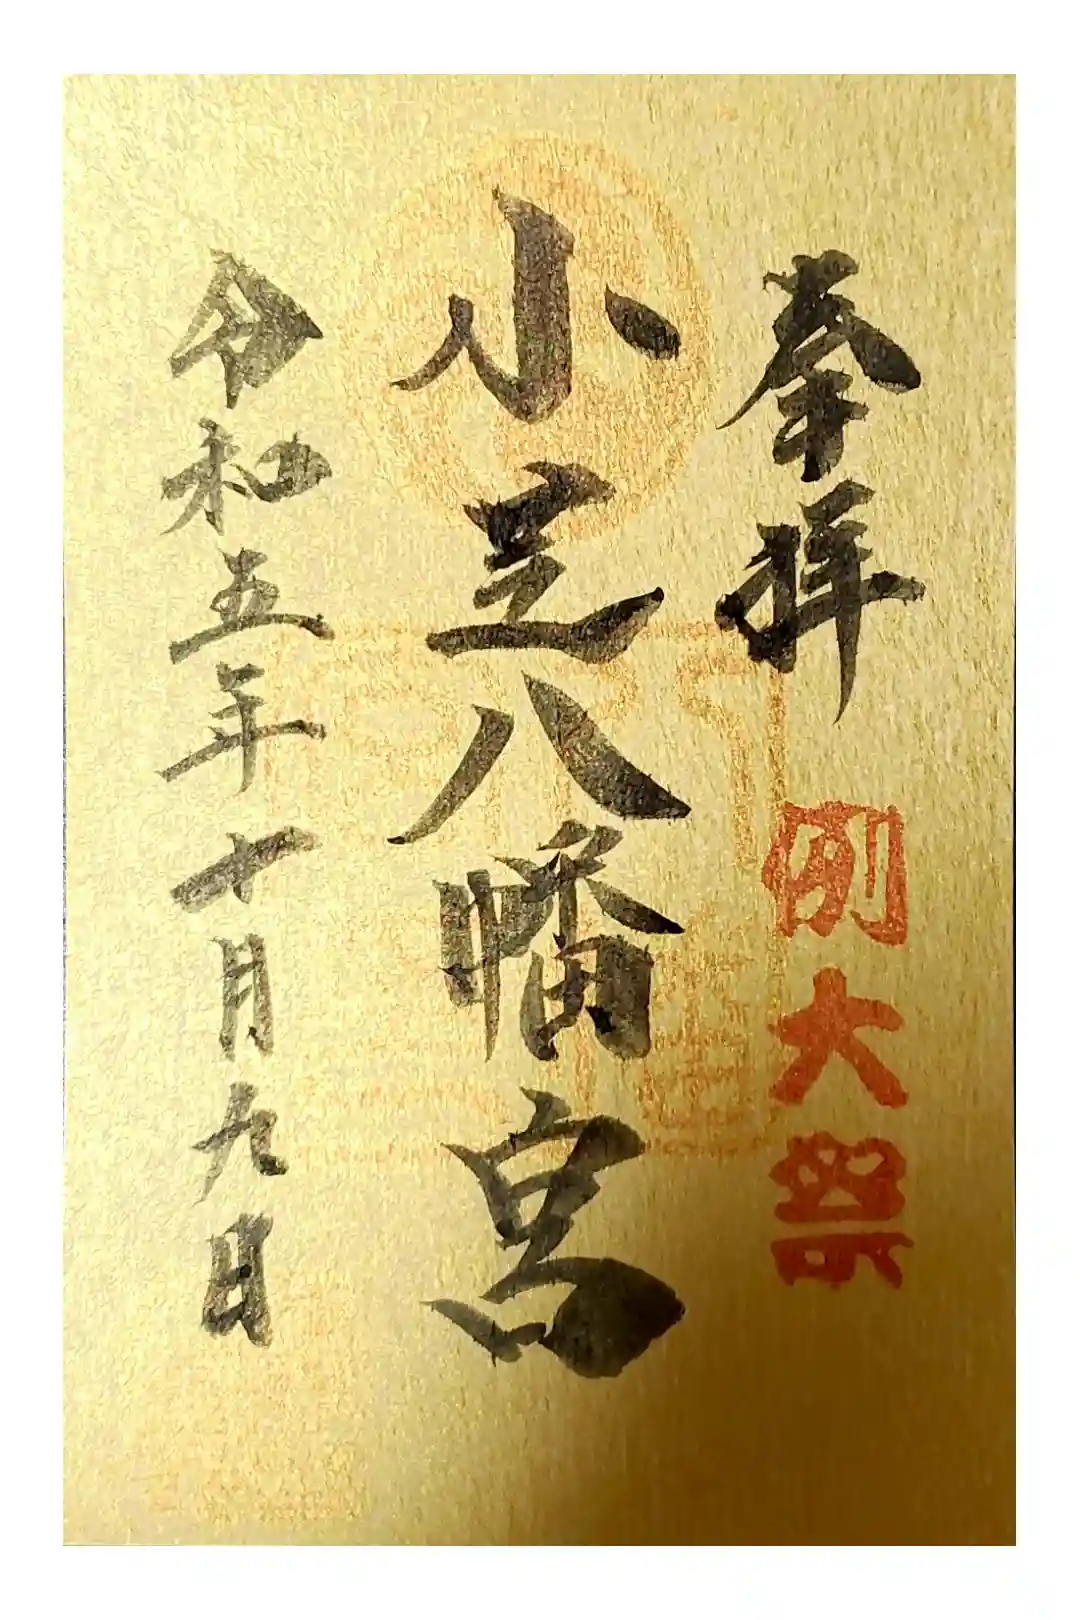 奉拝
例大祭
小芝八幡宮
令和五年十月九日